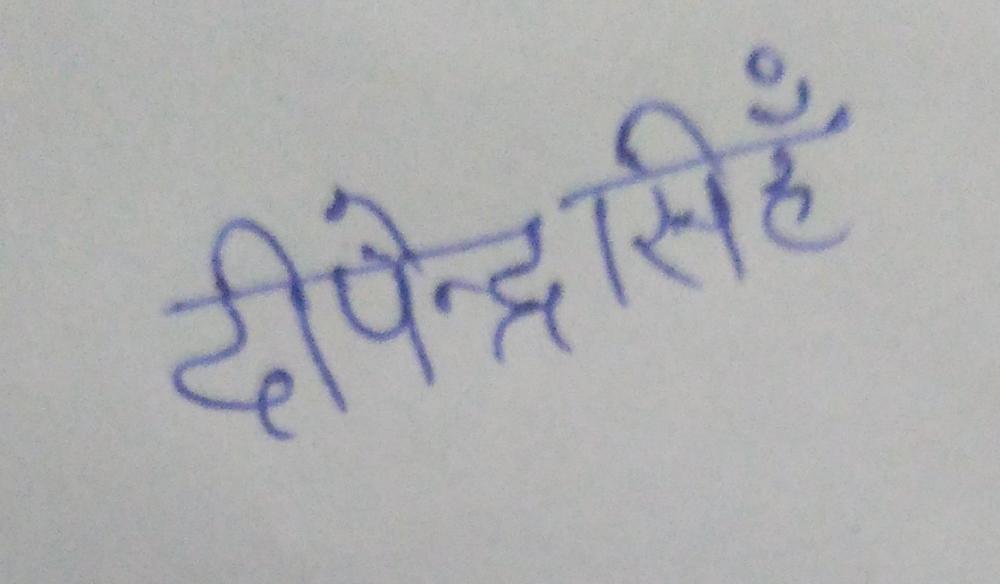 दीपेन्द्र सिहँ